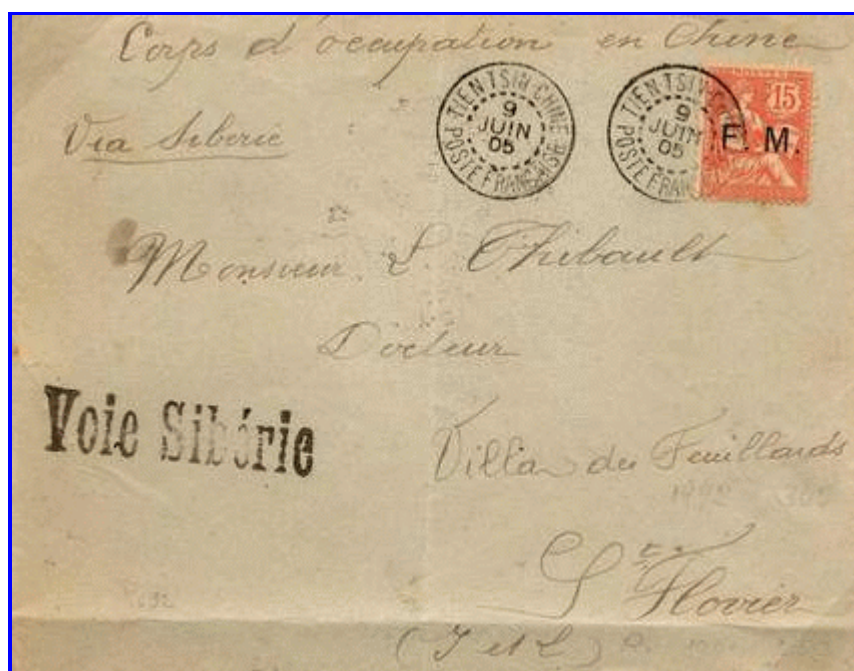 Corps d'occupation en Chine
Via Siberie
TIEN-TSIN-CHINE
9
JUIN
05
POSTE FRANÇAISE
TIEN-TSIN-CHINE
9
JUIN
05
POSTE FRANÇAISE
15
F. M.
Monsieur L. Thibault
Docteur
Voie Sibérie
Villa des Feuillards
Ste Flovier
(I et L)